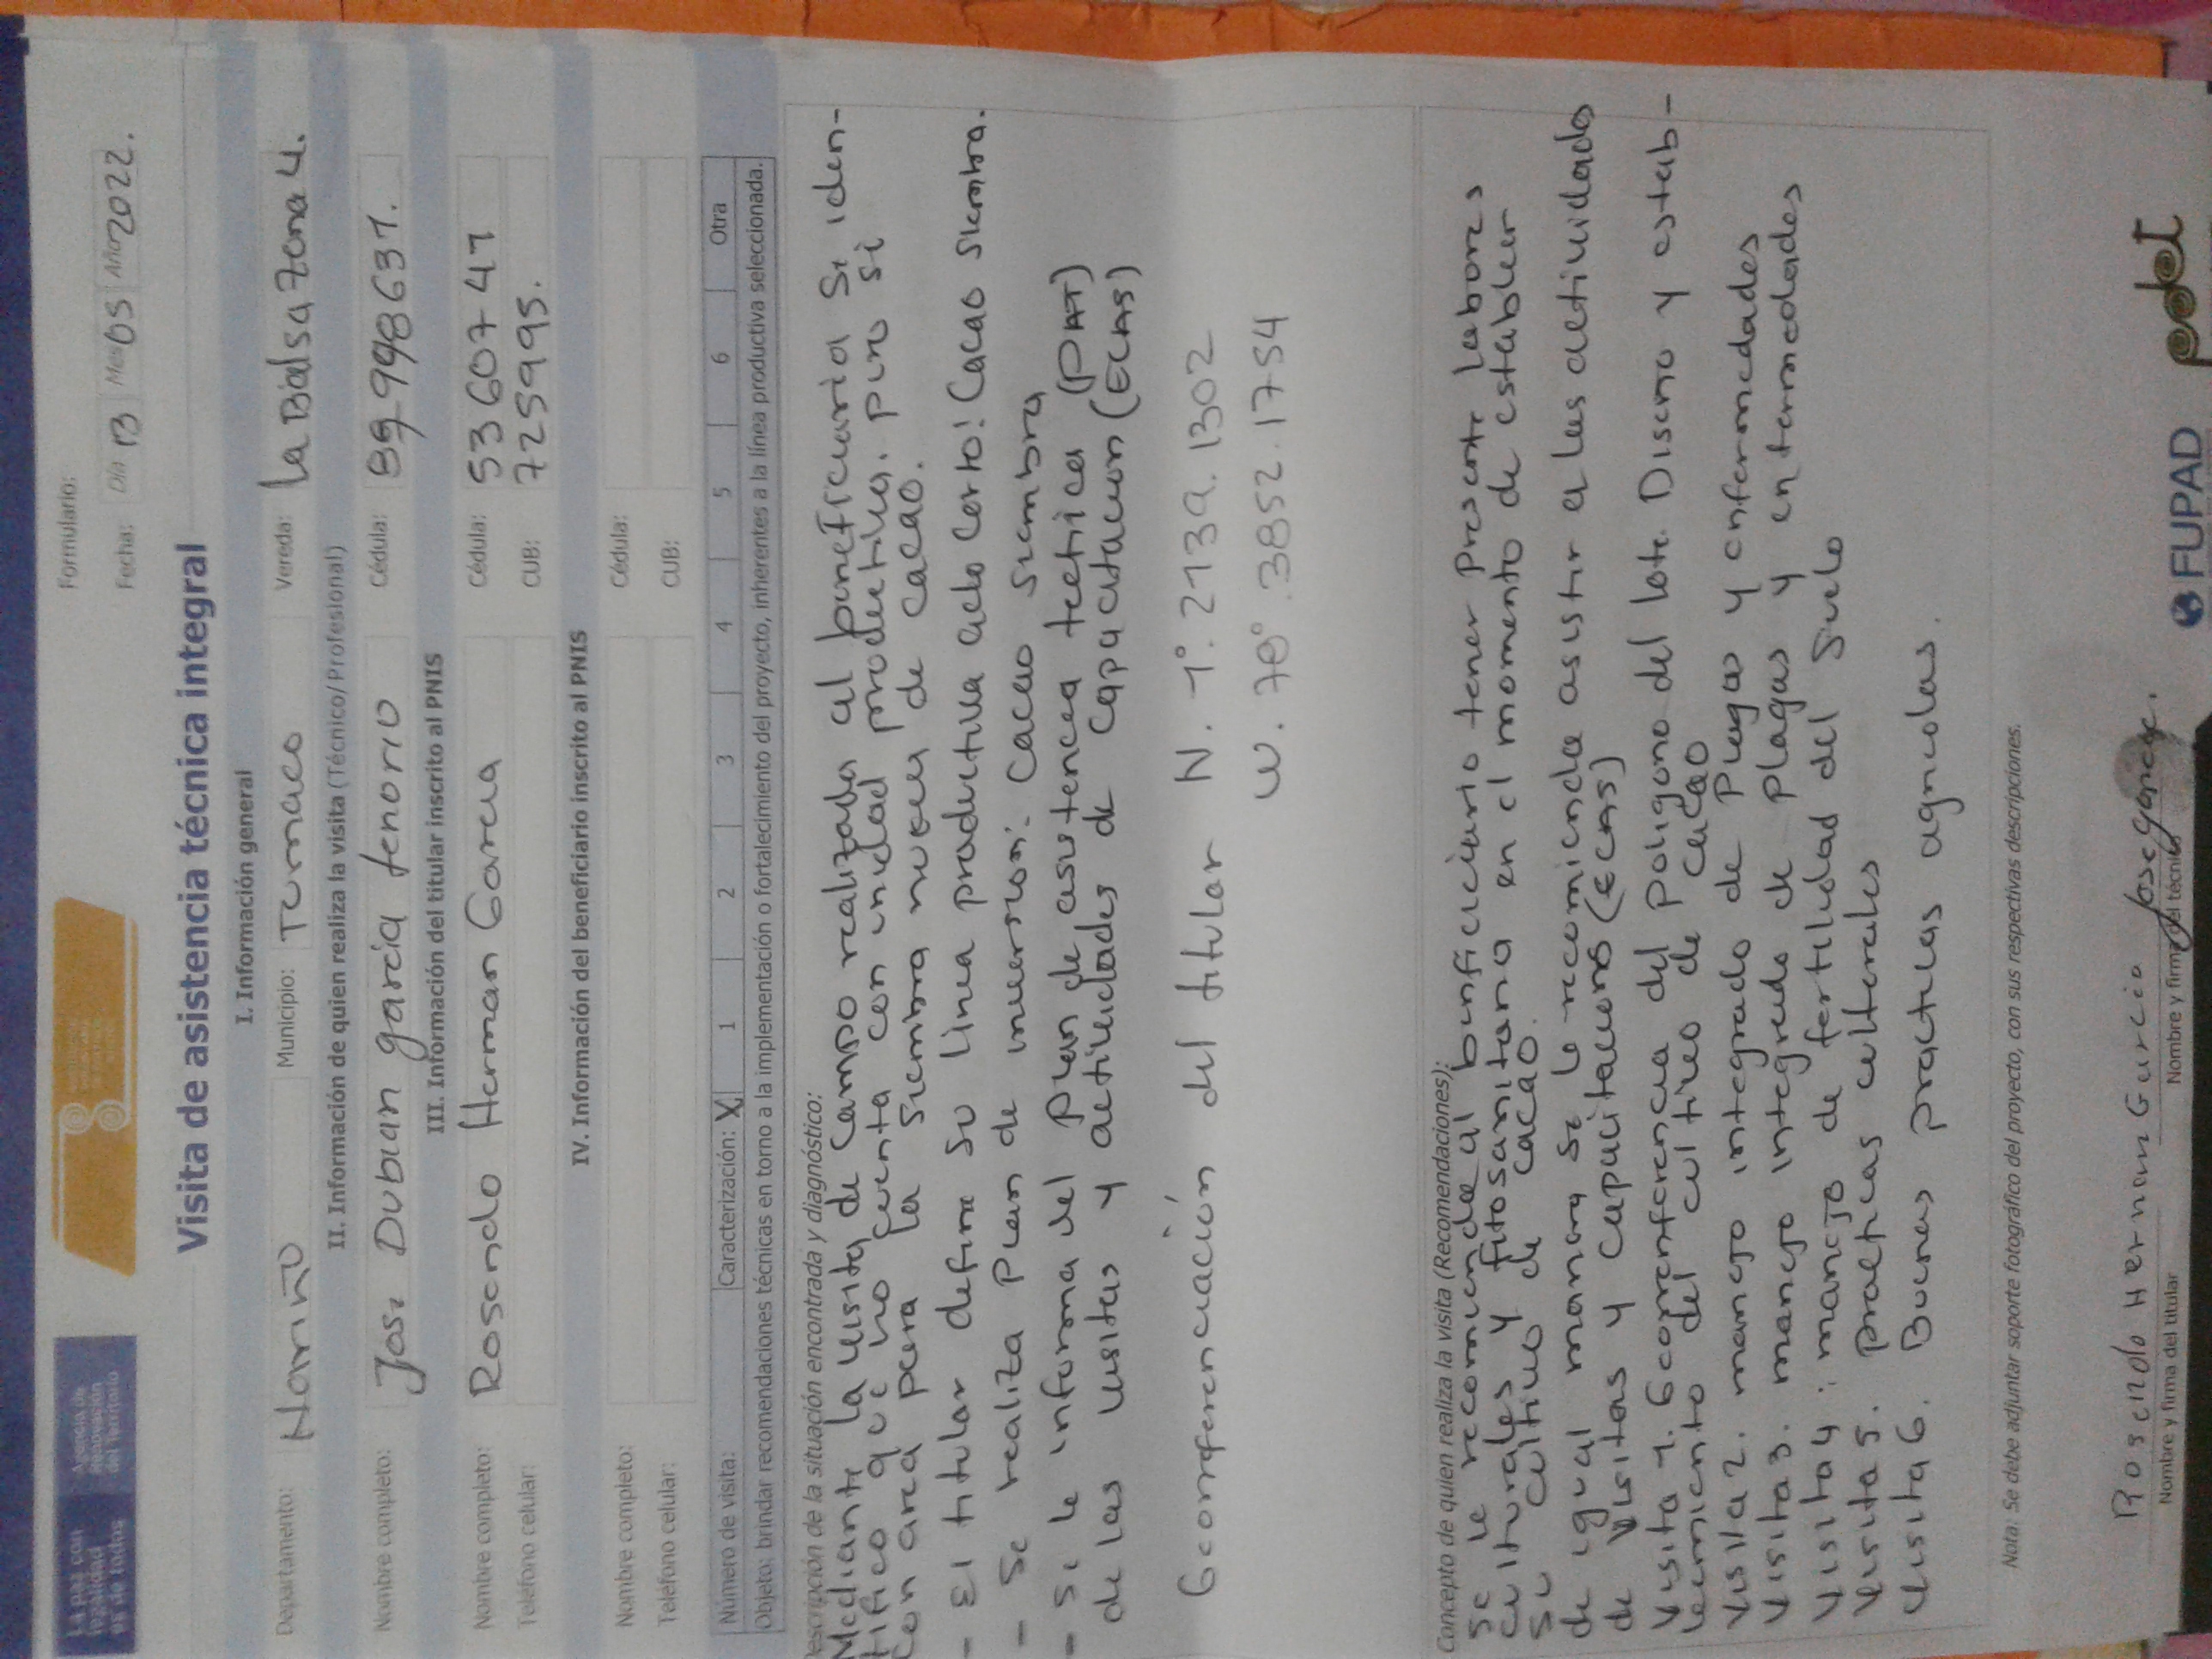 La paz con
legalidad
es de todos
Agencia de
Renovación
del Territorio
Formulario:
Fecha: Día 13 Mes 05 Año 2022.
Visita de asistencia técnica integral
I. Información general
Departamento: Nariño Municipio: Tumaco Vereda: la Balsa zona 4.
II. Información de quien realiza la visita (Técnico/ Profesional)
Nombre completo: Jose Duban garcia tenorio Cédula:
III. Información del titular inscrito al PNIS
Nombre completo: Rosendo Herman Garcia Cédula: 5360741
Teléfono celular: CUB: 725995.
IV. Información del beneficiario inscrito al PNIS
Nombre completo: Cédula:
Teléfono celular: CUB:
Número de visita: Caracterización: X 1 2 3 4 5 6 Otra
Objeto: brindar recomendaciones técnicas en torno a la implementación o fortalecimiento del proyecto, inherentes a la línea productiva seleccionada.
Descripción de la situación encontrada y diagnóstico:
Mediante la visita de campo realizada al beneficiario Se iden-
tifico que no cuenta con unidad productiva. pero si
con area para la siembra nueva de cacao.
- El titular define su linea productiva ciclo corto: Cacao siembra.
- Se realiza Plan de inversion: cacao siembra
- Se le informa del plan de asistencia tecnica (PAT)
de las visitas y actividades de capacitacion (ECAS)
Georeferenciación del titular N. 1°. 2139. 1302
W. 78°. 3852. 1754
Concepto de quien realiza la visita (Recomendaciones):
se le recomienda al beneficiario tener presente labores
culturales y fitosanitario en el momento de establecer
su cultivo de cacao.
de igual manera se le recomienda asistir a las actividades
de visitas y capacitaciones (ECAS)
Visita 1. Georeferencia del poligono del lote. Diseño y estab-
lecimiento del cultivo de cacao
Visita 2. manejo integrado de Plagas y enfermedades
Visita 3. manejo integrado de plagas y enfermedades
Visita 4: manejo de fertilidad del suelo
Visita 5. practicas culturales
Visita 6. Buenas practicas agricolas.
Nota: Se debe adjuntar soporte fotográfico del proyecto, con sus respectivas descripciones.
Rosendo Hernan Garcia Jose garcia.
Nombre y firma del titular Nombre y firma del técnico
FUPAD pdet